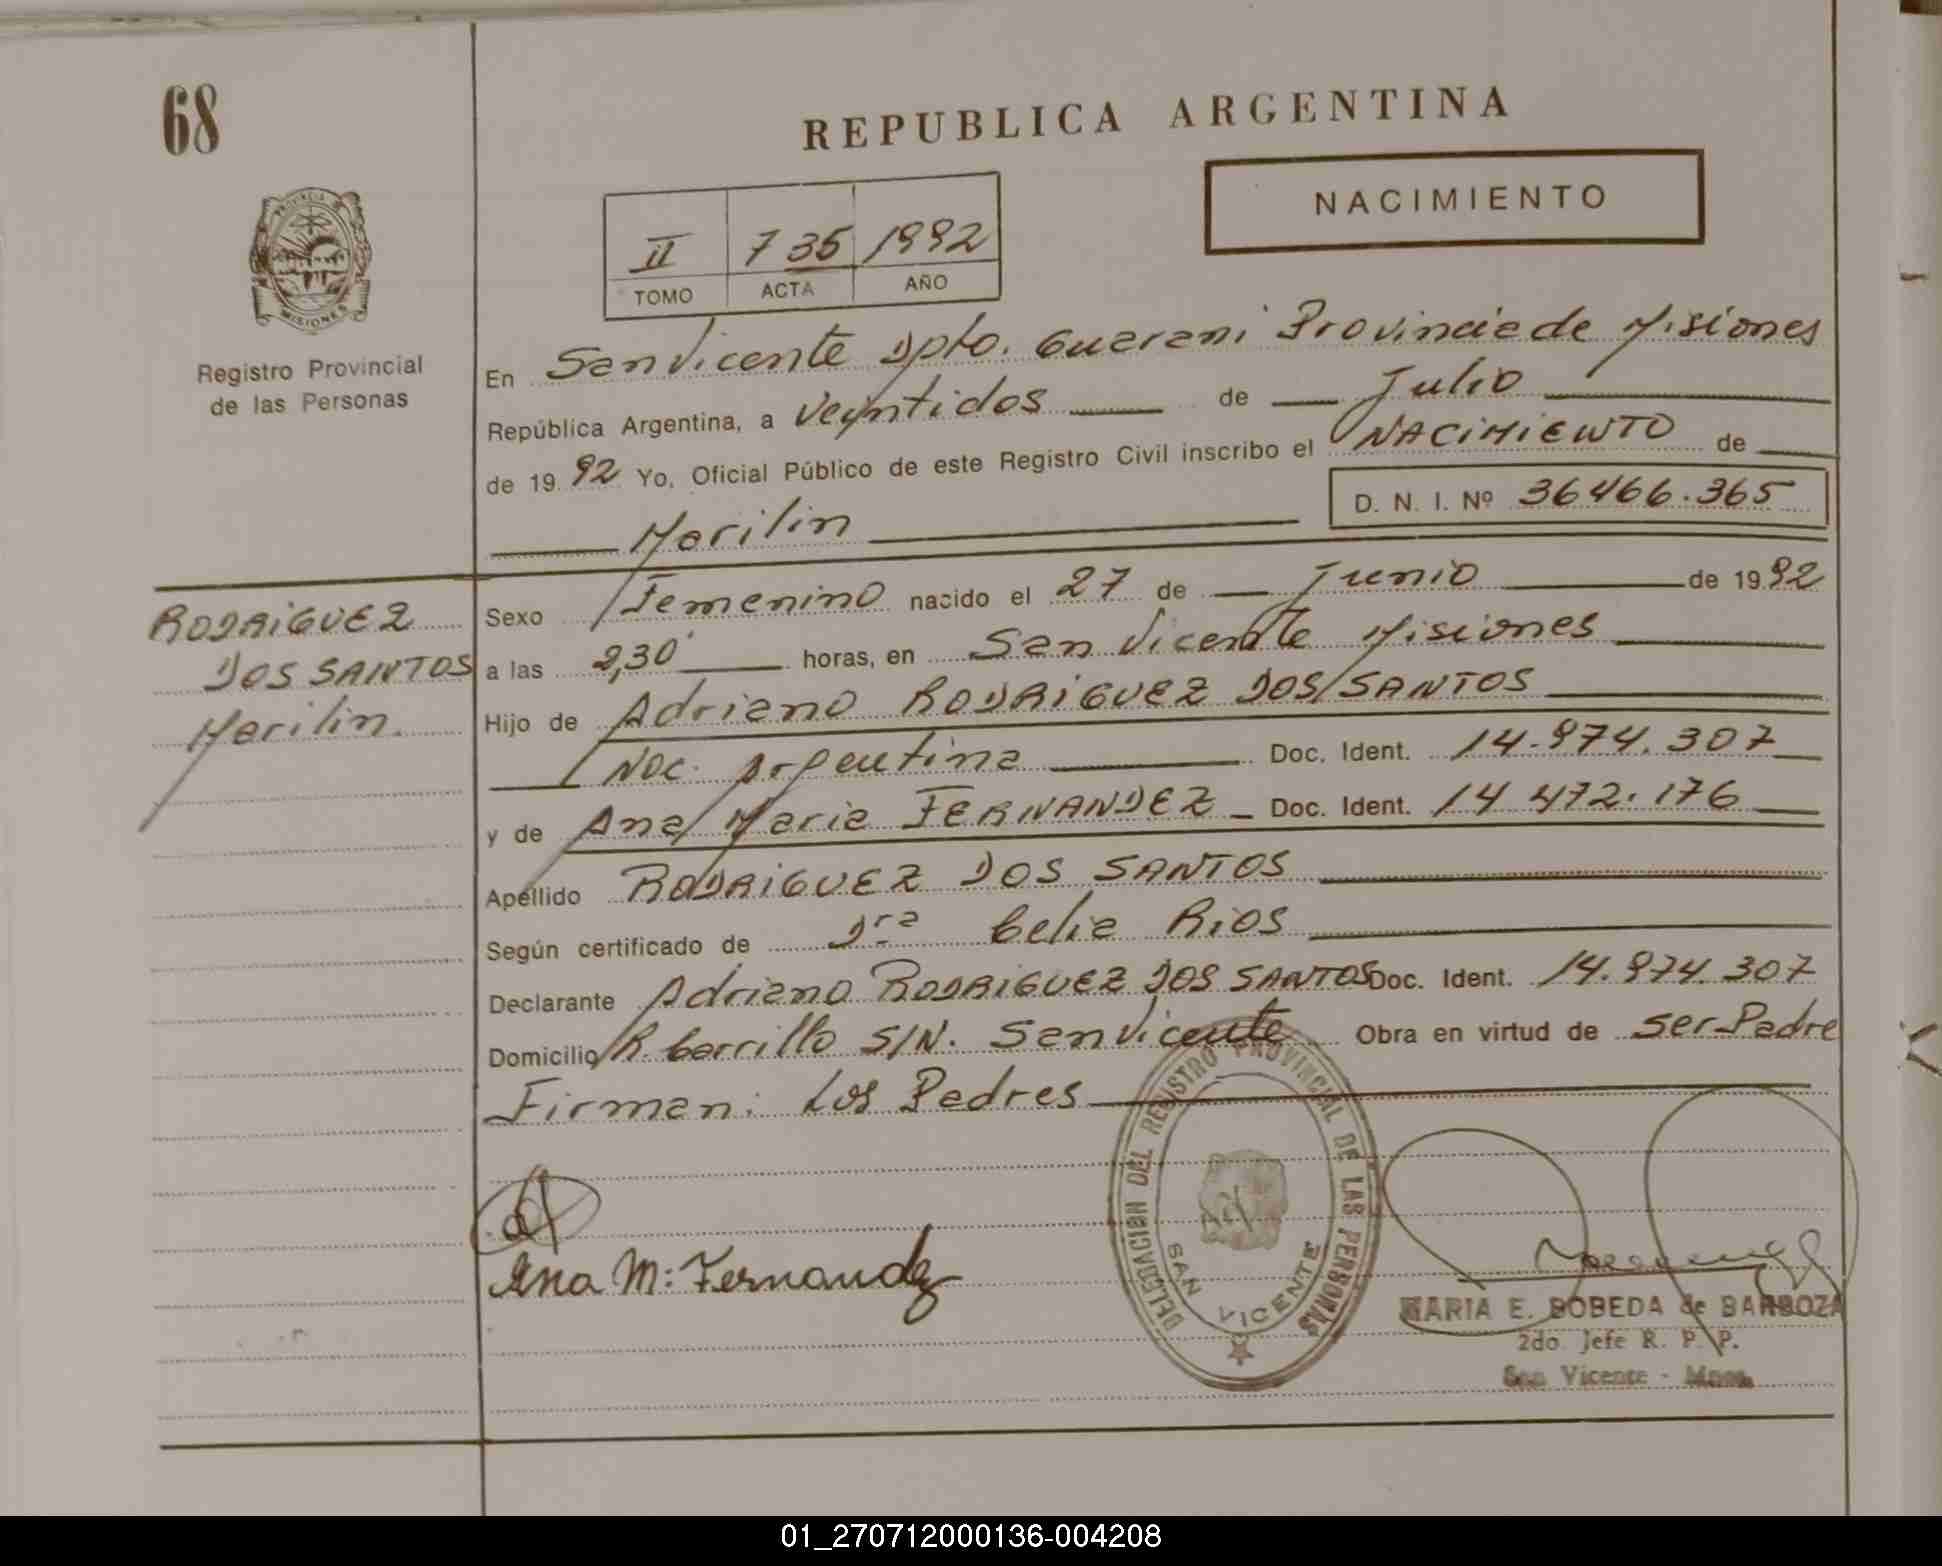 68
REPUBLICA ARGENTINA
NACIMIENTO
II 735 1992
TOMO ACTA AÑO
PROVINCIA DE
MISIONES
Registro Provincial
de las Personas
En San Vicente Dpto. Guarani Provincia de Misiones
República Argentina, a Veintidos de Julio
de 1992 Yo, Oficial Público de este Registro Civil inscribo el NACIMIENTO de
D. N. I. Nº 36466.365
Marilin
RODRIGUEZ
DOS SANTOS
Marilin.
Sexo Femenino nacido el 27 de Junio de 1992
a las 2,30 horas, en San Vicente Misiones
Hijo de Adriano RODRIGUEZ DOS SANTOS
Nac. Argentina Doc. Ident. 14.974.307
y de Ana Maria FERNANDEZ Doc. Ident. 14 472.176
Apellido RODRIGUEZ DOS SANTOS
Según certificado de Dra Celia Rios
Declarante Adriano RODRIGUEZ DOS SANTOS Doc. Ident. 14.974.307
Domicilio R. Carrillo S/N. San Vicente Obra en virtud de ser Padre
Firman: Los Padres
Ana M: Fernandez
DELEGACION DEL REGISTRO PROVINCIAL DE LAS PERSONAS
SAN VICENTE
MARIA E. BOBEDA de BARBOZA
2do. Jefe R. P. P.
San Vicente - Mnes.
01_270712000136-004208